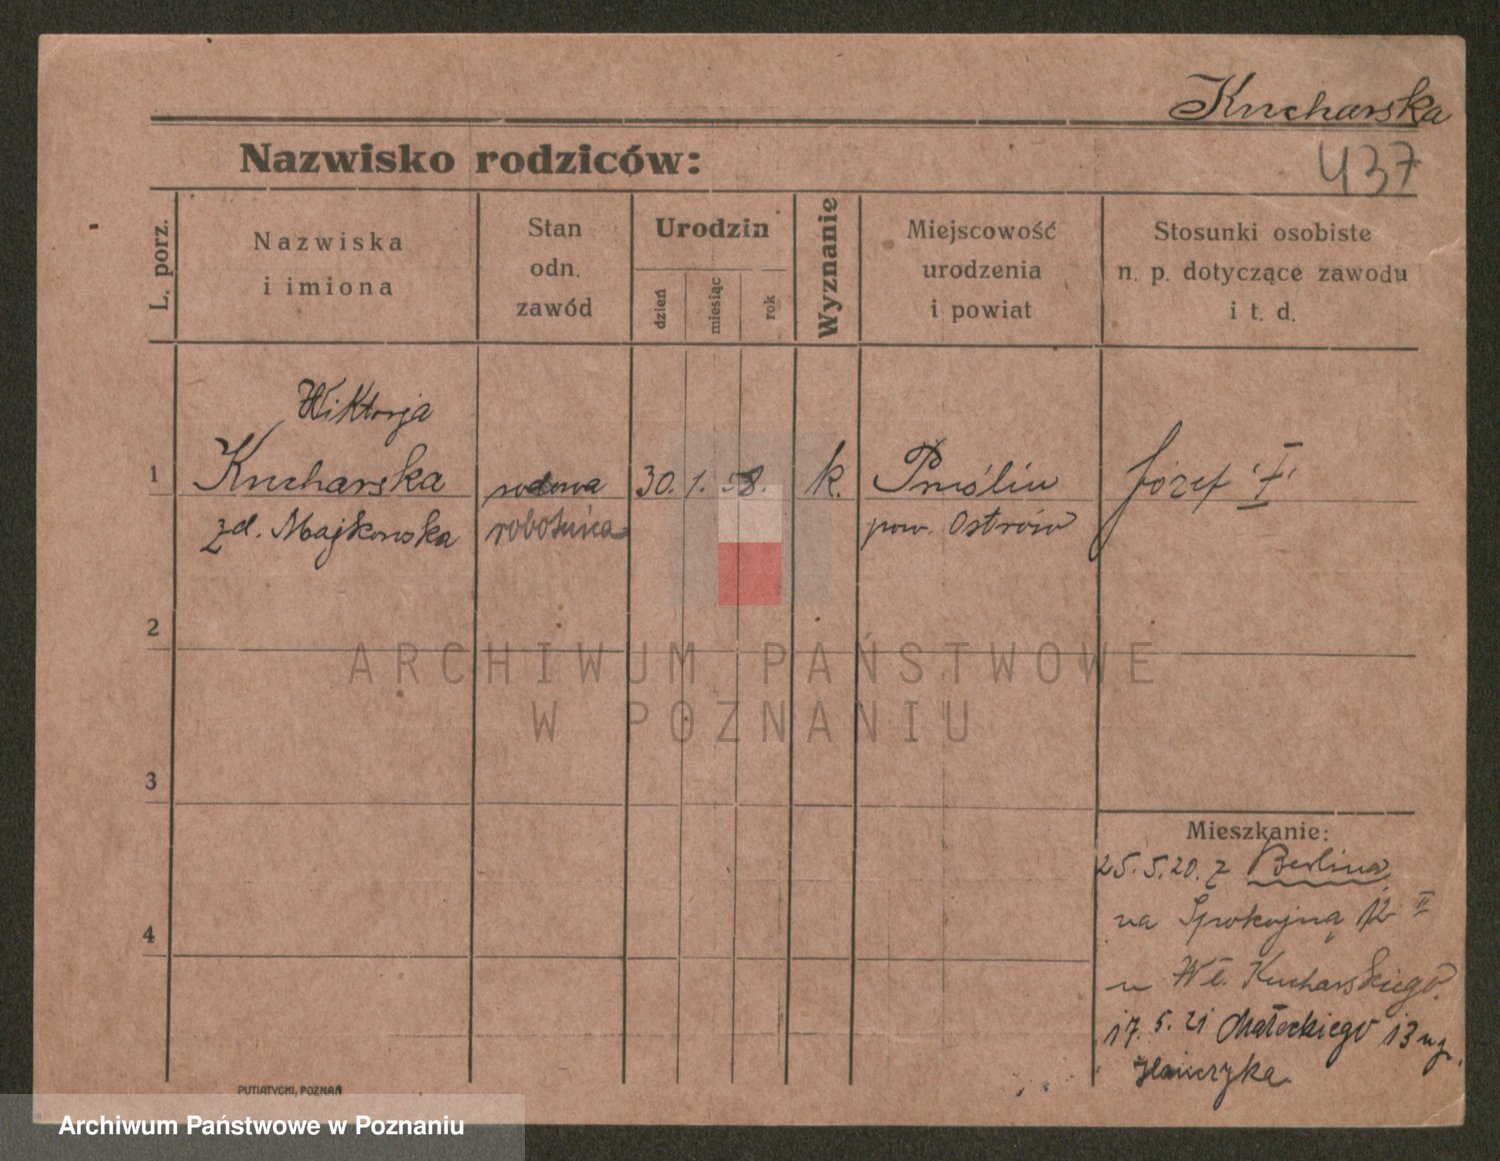 Kucharska
Nazwisko rodziców:
437
L. porz.
Nazwiska
i imiona
Stan
odn.
zawód
Urodzin
dzień
miesiąc
rok
Wyznanie
Miejscowość
urodzenia
i powiat
Stosunki osobiste
n. p. dotyczące zawodu
i t. d.
Wiktorja
1
Kucharska
30. 1. 58.
k.
Józef I
zd. Majkowska
robotnica
pow. Ostrów
2
ARCHIWUM PAŃSTWOWE
W POZNANIU
3
4
Mieszkanie:
25. 5. 20. z Berlina
na Spokojną 12 II
u Wł. Kucharskiego
17. 5. 21 Małeckiego 13
PUTIATYCKI, POZNAŃ
Archiwum Państwowe w Poznaniu